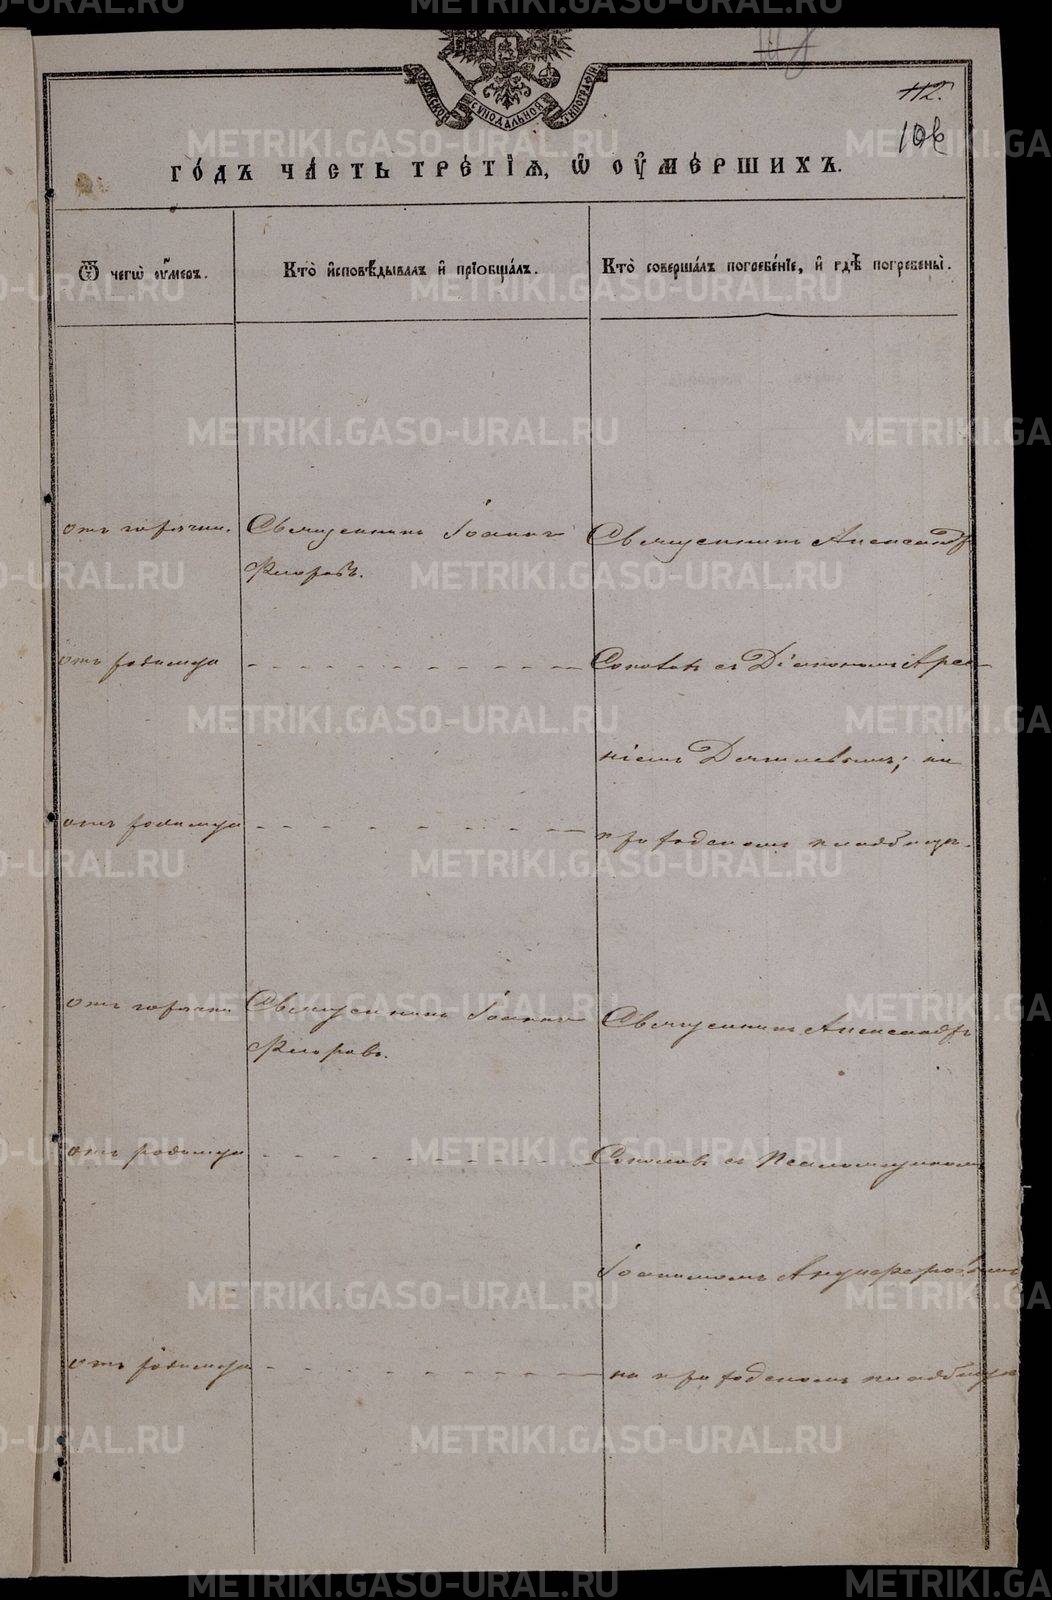 МОСКОВСКОЙ СѴНОДАЛЬНОЙ ТѴПОГРАФІИ
112.
106
ГО́ДЪ ЧА́СТЬ ТРЕ́ТІѦ, Ѡ҆ ОУ҆МЕ́РШИХЪ.
Ѿ чегѡ̀ оу҆́меръ.
Кто̀ и҆сповѣ́дывалъ и҆ прїобща́лъ.
Кто̀ соверша́лъ погребе́нїе, и҆ гдѣ̀ погребены̀.
отъ горячки.
Священникъ Іоаннъ
Флоровъ.
Священникъ Александръ
отъ родимца
Соколовъ съ Діакономъ Арсе-
ніемъ
на
отъ родимца
приходскомъ кладбищѣ.
отъ горячки
Священникъ Іоаннъ
Флоровъ.
Священникъ Александръ
отъ родимца
Соколовъ съ Псаломщикомъ
Іоанномъ
отъ родимца
на приходскомъ кладбищѣ
METRIKI.GASO-URAL.RU